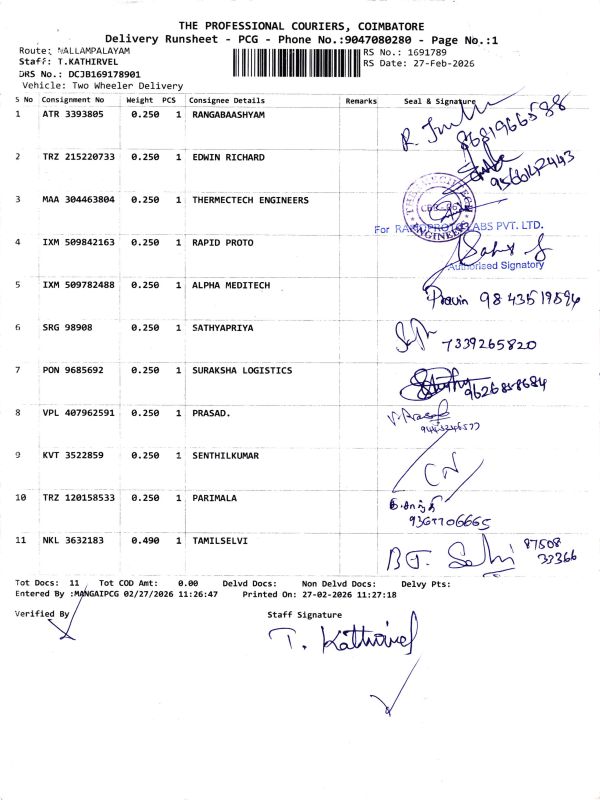 THE PROFESSIONAL COURIERS, COIMBATORE
Delivery Runsheet - PCG - Phone No.:9047080280 - Page No.:1
Route: NALLAMPALAYAM
RS No.: 1691789
Staff: T.KATHIRVEL
RS Date: 27-Feb-2026
DRS No.: DCJB169178901
Vehicle: Two Wheeler Delivery
S No Consignment No Weight PCS Consignee Details Remarks Seal & Signature
1 ATR 3393805 0.250 1 RANGABAASHYAM
8681966588
2 TRZ 215220733 0.250 1 EDWIN RICHARD
9566142443
3 MAA 304463804 0.250 1 THERMECTECH ENGINEERS
4 IXM 509842163 0.250 1 RAPID PROTO
For RAPID PROTO LABS PVT. LTD.
Authorised Signatory
5 IXM 509782488 0.250 1 ALPHA MEDITECH
Pravin
6 SRG 98908 0.250 1 SATHYAPRIYA
7339265820
7 PON 9685692 0.250 1 SURAKSHA LOGISTICS
8 VPL 407962591 0.250 1 PRASAD.
V. Prasad
9 KVT 3522859 0.250 1 SENTHILKUMAR
CN
10 TRZ 120158533 0.250 1 PARIMALA
11 NKL 3632183 0.490 1 TAMILSELVI
87508
33366
Tot Docs: 11 Tot COD Amt: 0.00 Delvd Docs: Non Delvd Docs: Delvy Pts:
Entered By :MANGAIPCG 02/27/2026 11:26:47 Printed On: 27-02-2026 11:27:18
Verified By
Staff Signature
T. Kathirvel